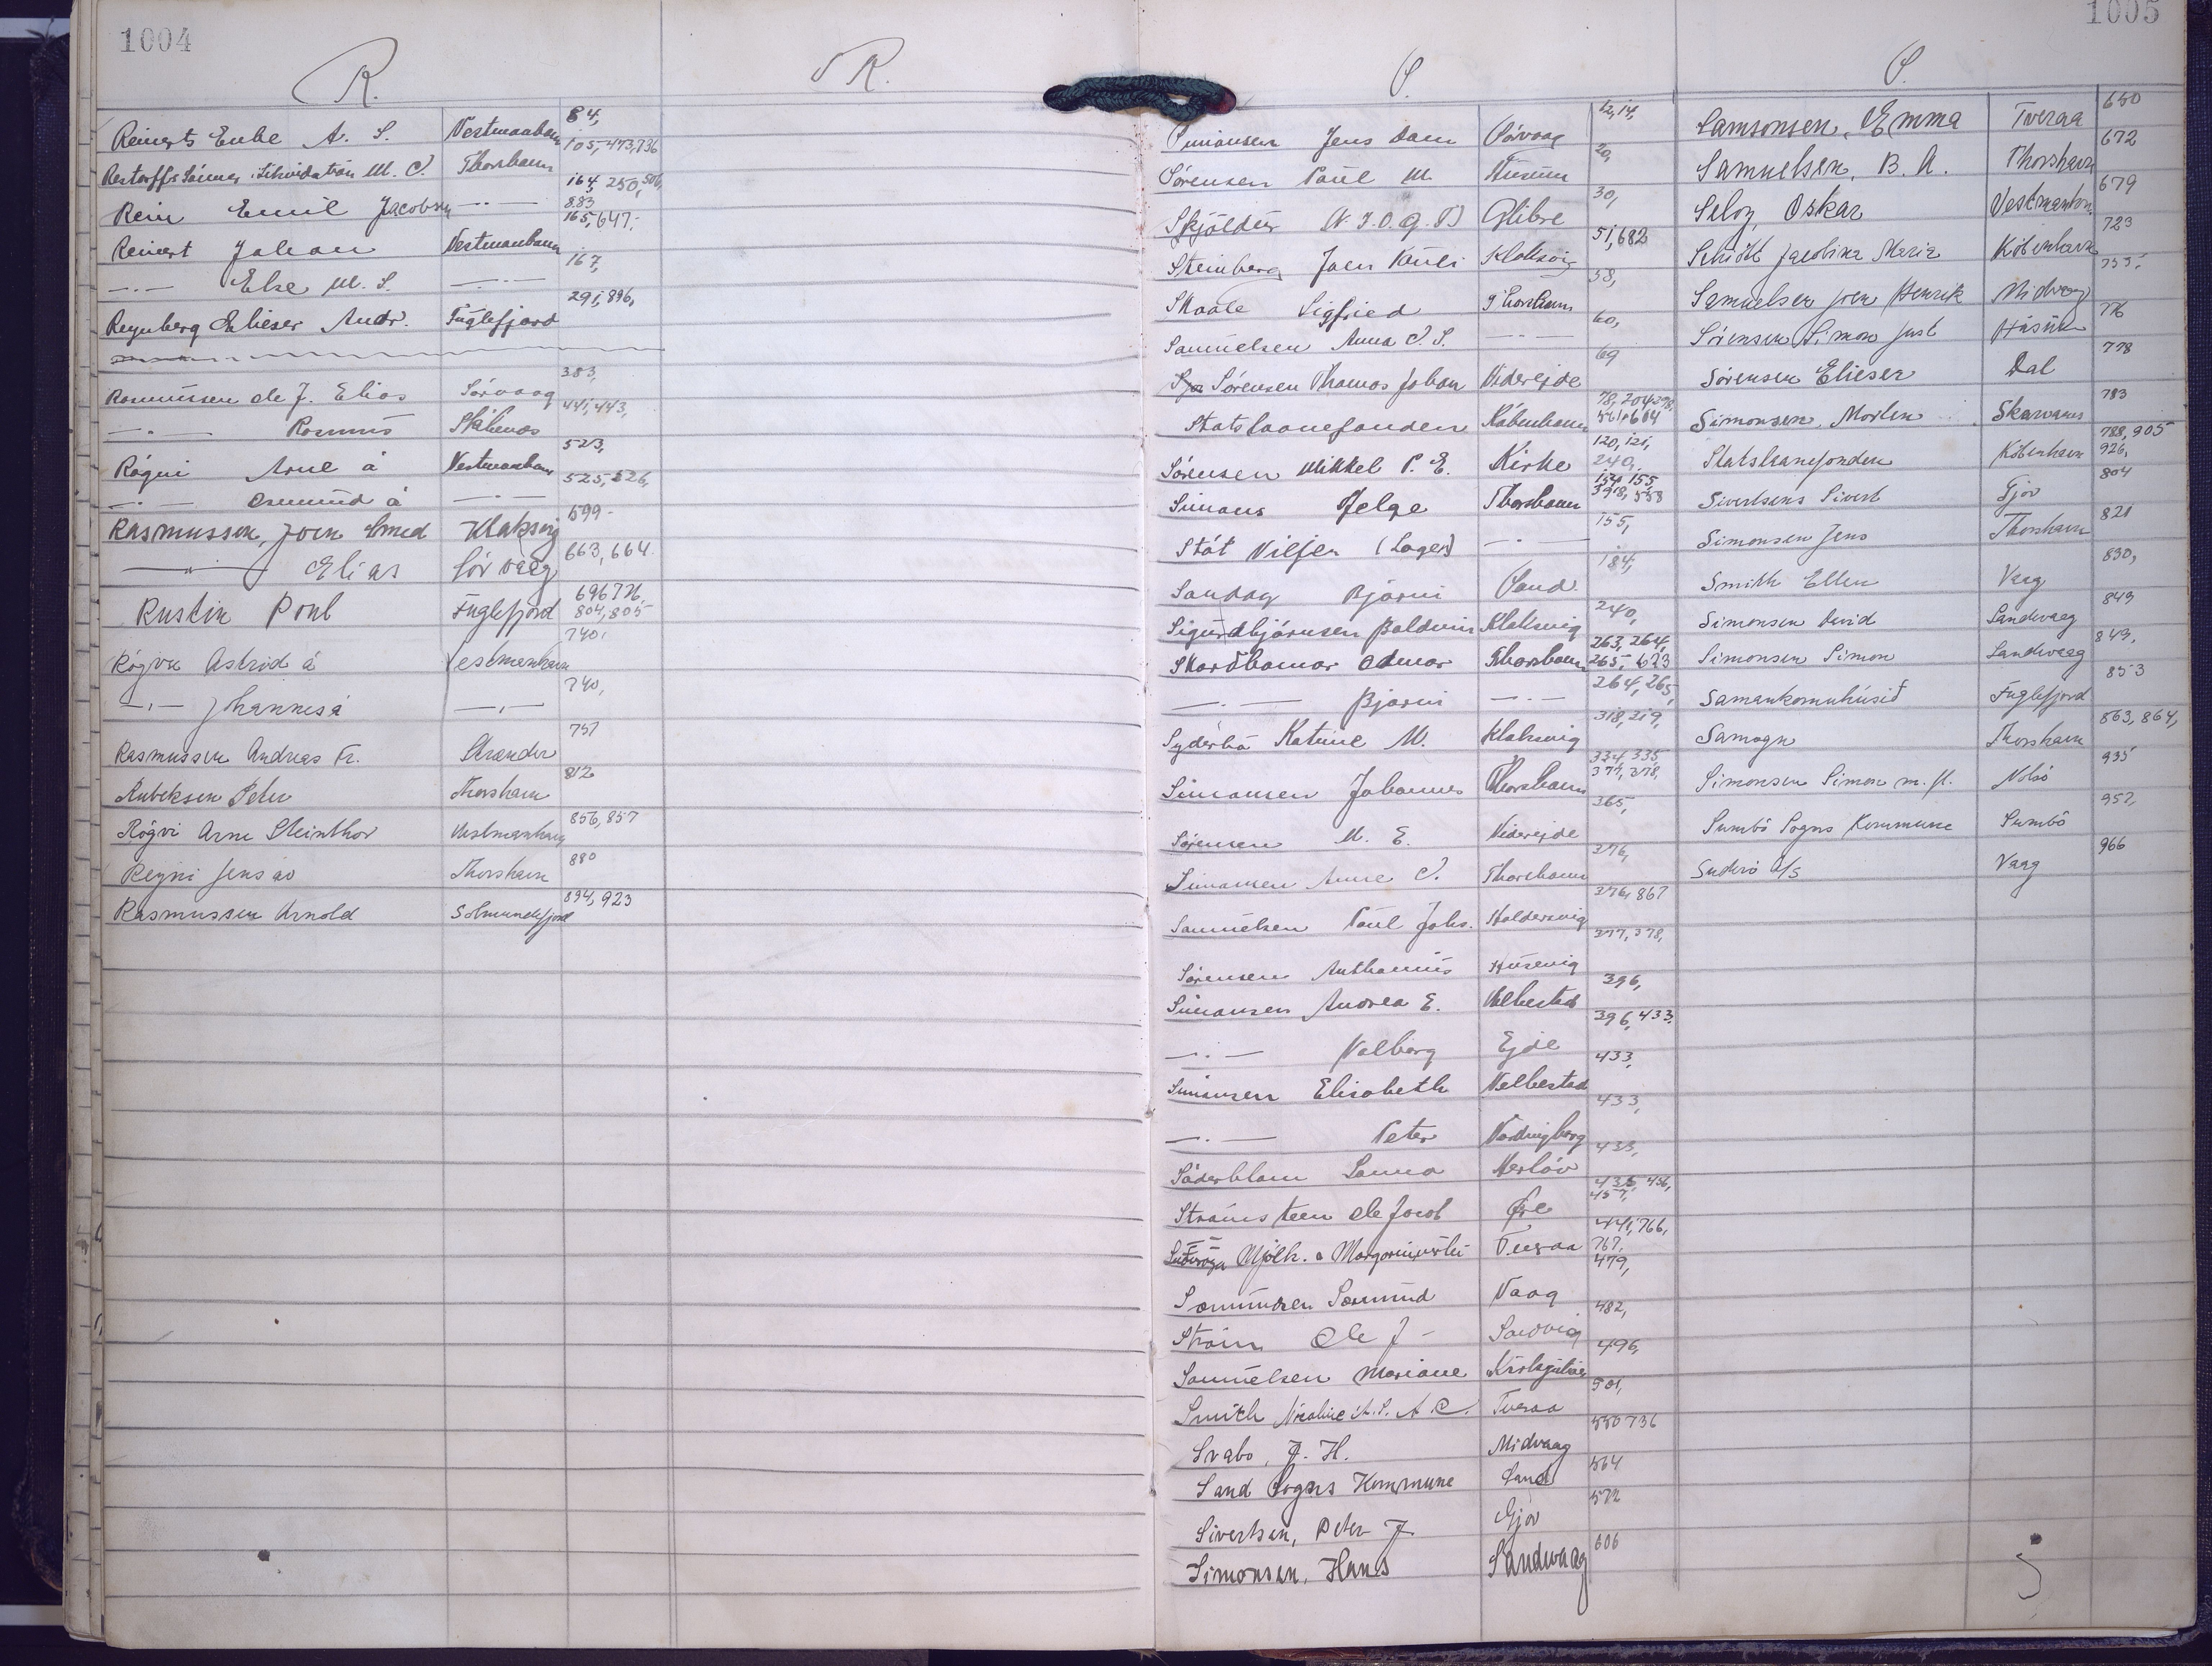 1004
R.
Reinerts Enke A. S. Vestmanhavn 84,
Restorffs Sönner i Likvidation M. C. Thorshavn 105, 473, 736
Rein Emil Jacobsen —·— 164, 250, 506, 883
Reinert Johan Vestmanhavn 165, 647,
—·— Else M. S. —·— 167,
Reynberg Elieser Andr. Fuglefjord 291, 896,
Rasmussen Ole J. Elias Sörvaag 383,
—·— Rasmus Skälevos 441, 443,
Rógvi Arne á Vestmanhavn 523,
—·— Osmund á —·— 525, 526,
Rasmussen, Joen Emed Klaksvig 599
—·— Elias Sörvaag 663, 664
Rustin Poul Fuglefjord 696 726, 804, 805
Rógvu Astrid á Vestmanhavn 740,
—·— Jóhannes á —·— 740,
Rasmussen Andreas Fr. Strænder 757
Rubeksen Peter Thorshavn 812
Rógvi Arne Steinthor Vestmanhavn 856, 857
Reyni Jens av Thorshavn 880
Rasmussen Arnold Solmundefjord 894, 923
R.
S.
Simonsen Jens Dam Sörvaag 12, 14,
Sørensen Poul M. Húsum 20,
Skjöldur (V. I. O. G. T.) Glibre 30,
Steinberg Joen Pauli Klaksvig 51, 682
Skaale Sigfried Thorshavn 58,
Samuelsen Anna C. S. —·— 60,
Sørensen Thomas Johan Viderejde 69
Statslaanefonden København 78, 204, 278, 561, 604
Sørensen Mikkel P. E. Kirke 120, 121, 240,
Simons Helge Thorshavn 154, 155, 398, 558
Stát Viljen (Logen) —·— 155,
Sandoy Bjarni Sand 184,
Sigurdbjörnsen Baldvin Klaksvig 240,
Skardhamar Odmar Thorshavn 263, 264, 265, 623
—·— Bjarni —·— 264, 265,
Syderbö Katrine M. Klaksvig 318, 219,
Simonsen Johannes Thorshavn 334, 335, 377, 378,
Sørensen M. E. Viderejde 365,
Simonsen Anne C. Thorshavn 376,
Samuelsen Poul Johs. Haldersvig 376, 867
Sørensen Anthonius Húsevig 377, 378,
Simonsen Andrea E. Velbestad 396,
—·— Valborg Ejde 396, 433,
Simonsen Elisabeth Velbestad 433,
—·— Peter Vordingborg 433,
Söderblom Sanna Herlöv 433,
Strómsteen Ole Jacob Øre 435, 456, 457,
Suduroya Mjólk. & Margarinvirki Tveraa 441, 766, 767,
Sæmundsen Sæmund Vaag 479,
Ström Ole J Sandvig 482,
Samuelsen Mariane 496,
Smith Nicoline A. S. A. C. Tveraa 501,
Svabo, J. H. Midvaag 550 736
Sand Sogns Kommune Sand 564
Sivertsen, Peter J Gjov 572
Simonsen, Hans Sandvaag 606
1005
S.
Samsonsen, Emma Tveraa 650
Samuelsen, B. A. Thorshavn 672
Seloy Oskar Vestmanhvn. 679
Schiött Jacobina Maria København 723
Samuelsen Joen Henrik Midvaag 755,
Sörensen Simon Just Húsum 776
Sörensen Elieser Dal 778
Simonsen, Morten Skarvanes 783
Statslaanefonden København 788, 905 926,
Sivertsens Sivert Gjov 804
Simonsen Jens Thorshavn 821
Smith Ellen Vaag 830,
Simonsen David Sandvaag 849
Simonsen Simon Sandvaag 849,
Samankomuhúsið Fuglefjord 853
Samogn Thorshavn 863, 864,
Simonsen Simon m. fl. Nolsö 935
Sumbö Sogns Kommune Sumbö 957,
Suderö A/S Vaag 966